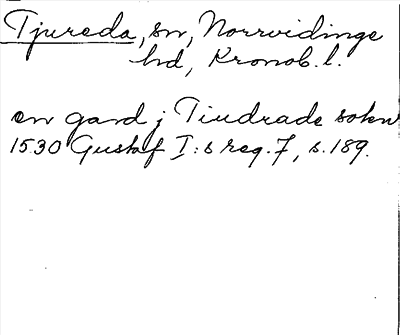 Tjureda, sn, Norrvidinge
hd, Kronob. l.
en gard j Tiudrade sokn
1530 Gustaf I:s reg. 7, s. 189.